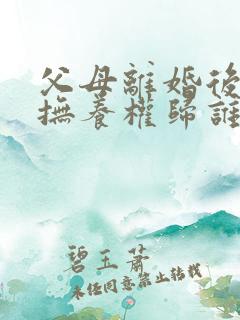 父母離婚後
撫養權歸誰
碧玉蕭
未任同意禁止转载